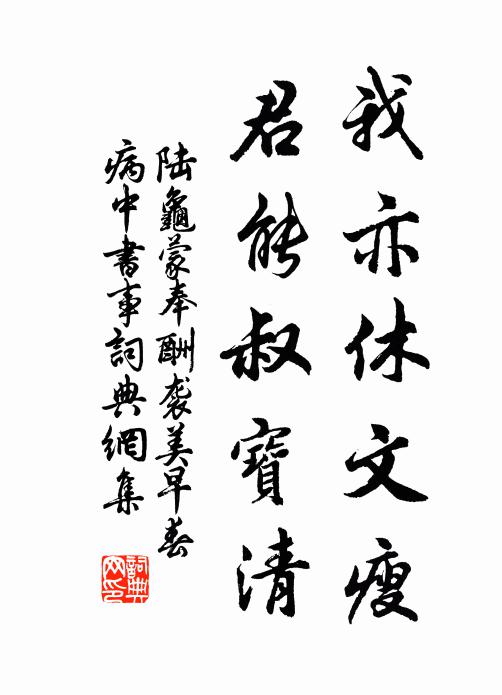 我亦休文瘦
君能叔寶清
陸龜蒙奉酬襲美早春
病中書事詞典網集
詞典網印